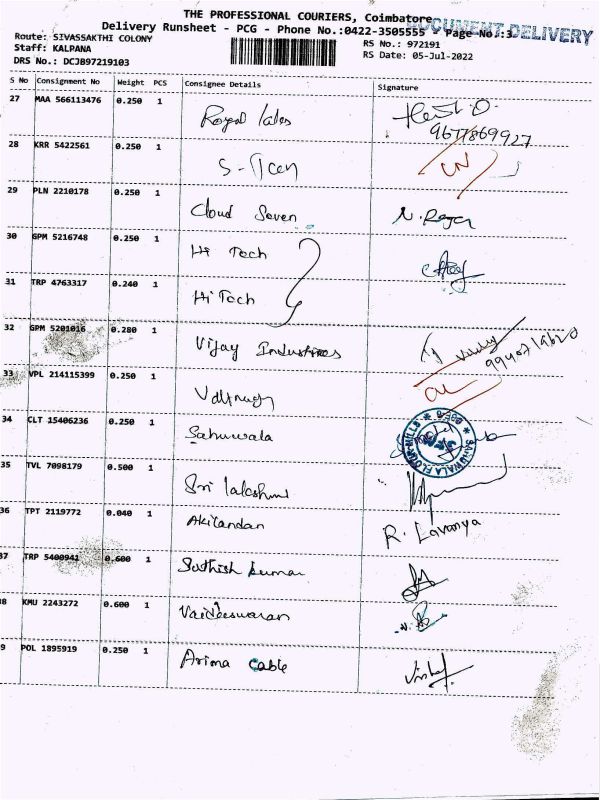 THE PROFESSIONAL COURIERS, Coimbatore
DOCUMENT DELIVERY
Delivery Runsheet - PCG - Phone No.:0422-3505555 - Page No.:3
Route: SIVASSAKTHI COLONY
RS No.: 972191
Staff: KALPANA
RS Date: 05-Jul-2022
DRS No.: DCJB97219103
S No Consignment No Weight PCS Consignee Details Signature
27 MAA 566113476 0.250 1 Royal
9677869927
28 KRR 5422561 0.250 1
29 PLN 2210178 0.250 1 Cloud Seven N. Raja
30 GPM 5216748 0.250 1 Hi Tech
31 TRP 4763317 0.240 1 Hi Tech
32 GPM 5201016 0.280 1 Vijay Industries
33 VPL 214115399 0.250 1
34 CLT 15406236 0.250 1 Sahuwala
SAHUWALA FLOUR MILLS
35 TVL 7098179 0.500 1 Sri lakshmi
36 TPT 2119772 0.040 1 Akilandan R. Lavanya
37 TRP 5400941 0.600 1 Sathish kumar
38 KMU 2243272 0.600 1 Vaideeswaran
39 POL 1895919 0.250 1 Arima cable